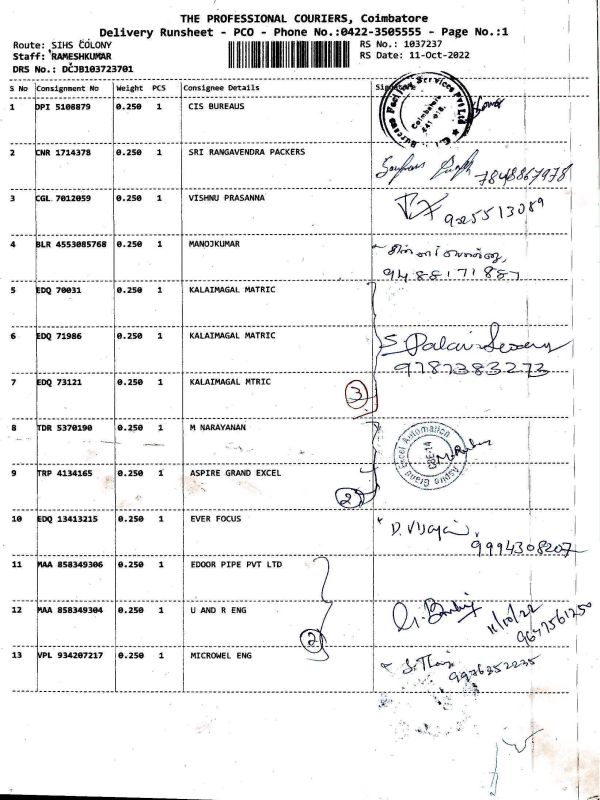 THE PROFESSIONAL COURIERS, Coimbatore
Delivery Runsheet - PCO - Phone No.:0422-3505555 - Page No.:1
Route: SIHS COLONY RS No.: 1037237
Staff: RAMESHKUMAR RS Date: 11-Oct-2022
DRS No.: DCJB103723701
S No Consignment No Weight PCS Consignee Details Signature
1 DPI 5108879 0.250 1 CIS BUREAUS
2 CNR 1714378 0.250 1 SRI RANGAVENDRA PACKERS
7848867978
3 CGL 7012059 0.250 1 VISHNU PRASANNA
925513089
4 BLR 4553085768 0.250 1 MANOJKUMAR
9488171887
5 EDQ 70031 0.250 1 KALAIMAGAL MATRIC
6 EDQ 71986 0.250 1 KALAIMAGAL MATRIC
9787383273
7 EDQ 73121 0.250 1 KALAIMAGAL MTRIC
3
8 TDR 5370190 0.250 1 M NARAYANAN
Aspire Grand Excel Automatics
CBE-14
9 TRP 4134165 0.250 1 ASPIRE GRAND EXCEL
2
10 EDQ 13413215 0.250 1 EVER FOCUS
D. Vijaya
9994308207
11 MAA 858349306 0.250 1 EDOOR PIPE PVT LTD
12 MAA 858349304 0.250 1 U AND R ENG
11/10/22
9647561250
2
13 VPL 934207217 0.250 1 MICROWEL ENG
9976352235